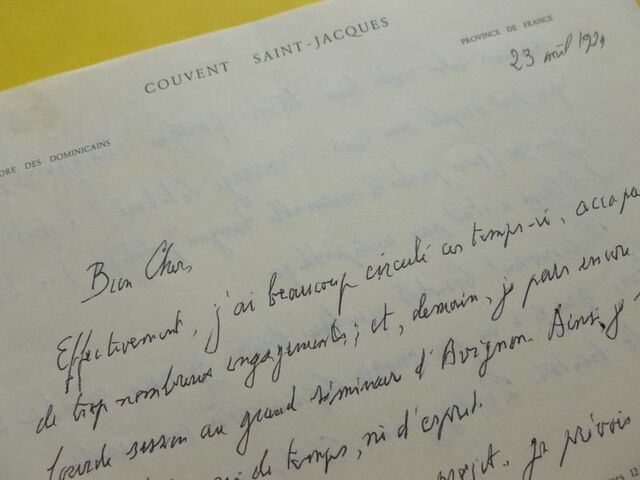 COUVENT SAINT-JACQUES
PROVINCE DE FRANCE
23 avril 19
DRE DES DOMINICAINS
Bien Cher,
Effectivement, j'ai beaucoup circulé ces temps-ci, accapa
de trop nombreux engagements; et, demain, je pars encore
lourde session au grand séminaire d'Avignon. Ainsi, je
de temps, ni d'esprit.
projet. je prévois